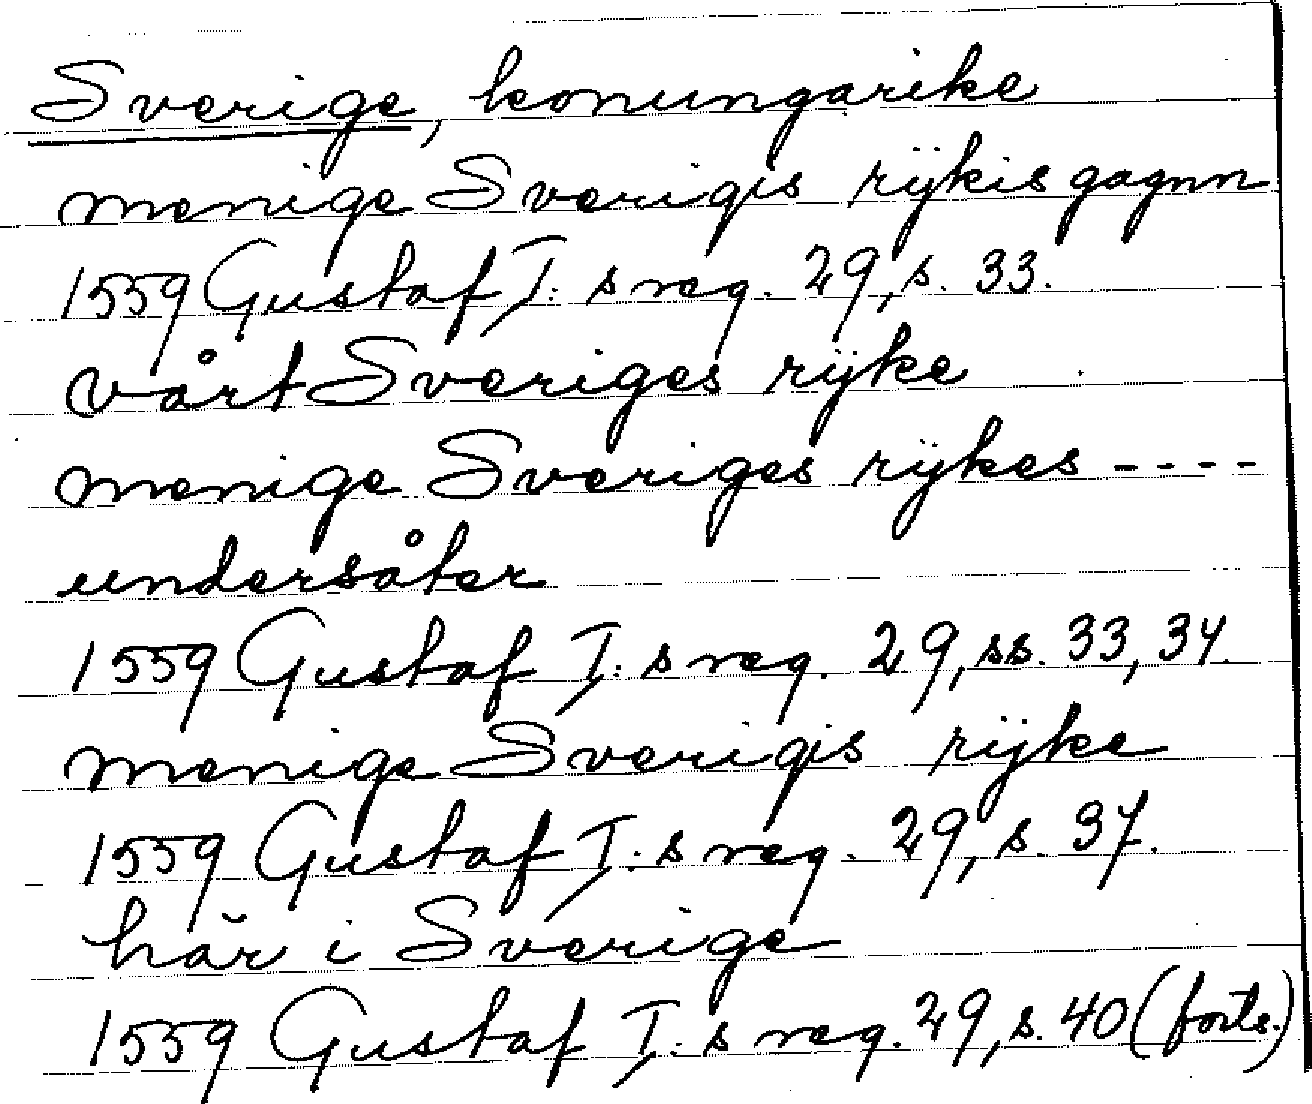 Sverige, konungarike
menige Sverigis rÿkis gagnn
1559 Gustaf I:s reg. 29, s. 33.
vårt Sveriges rÿke
menige Sveriges rÿkes ----
undersåter
1559 Gustaf I:s reg. 29, ss. 33, 34.
menige Sverigis rÿke
1559 Gustaf I:s reg. 29, s. 37.
här i Sverige
1559 Gustaf I:s reg. 29, s. 40 (forts.)